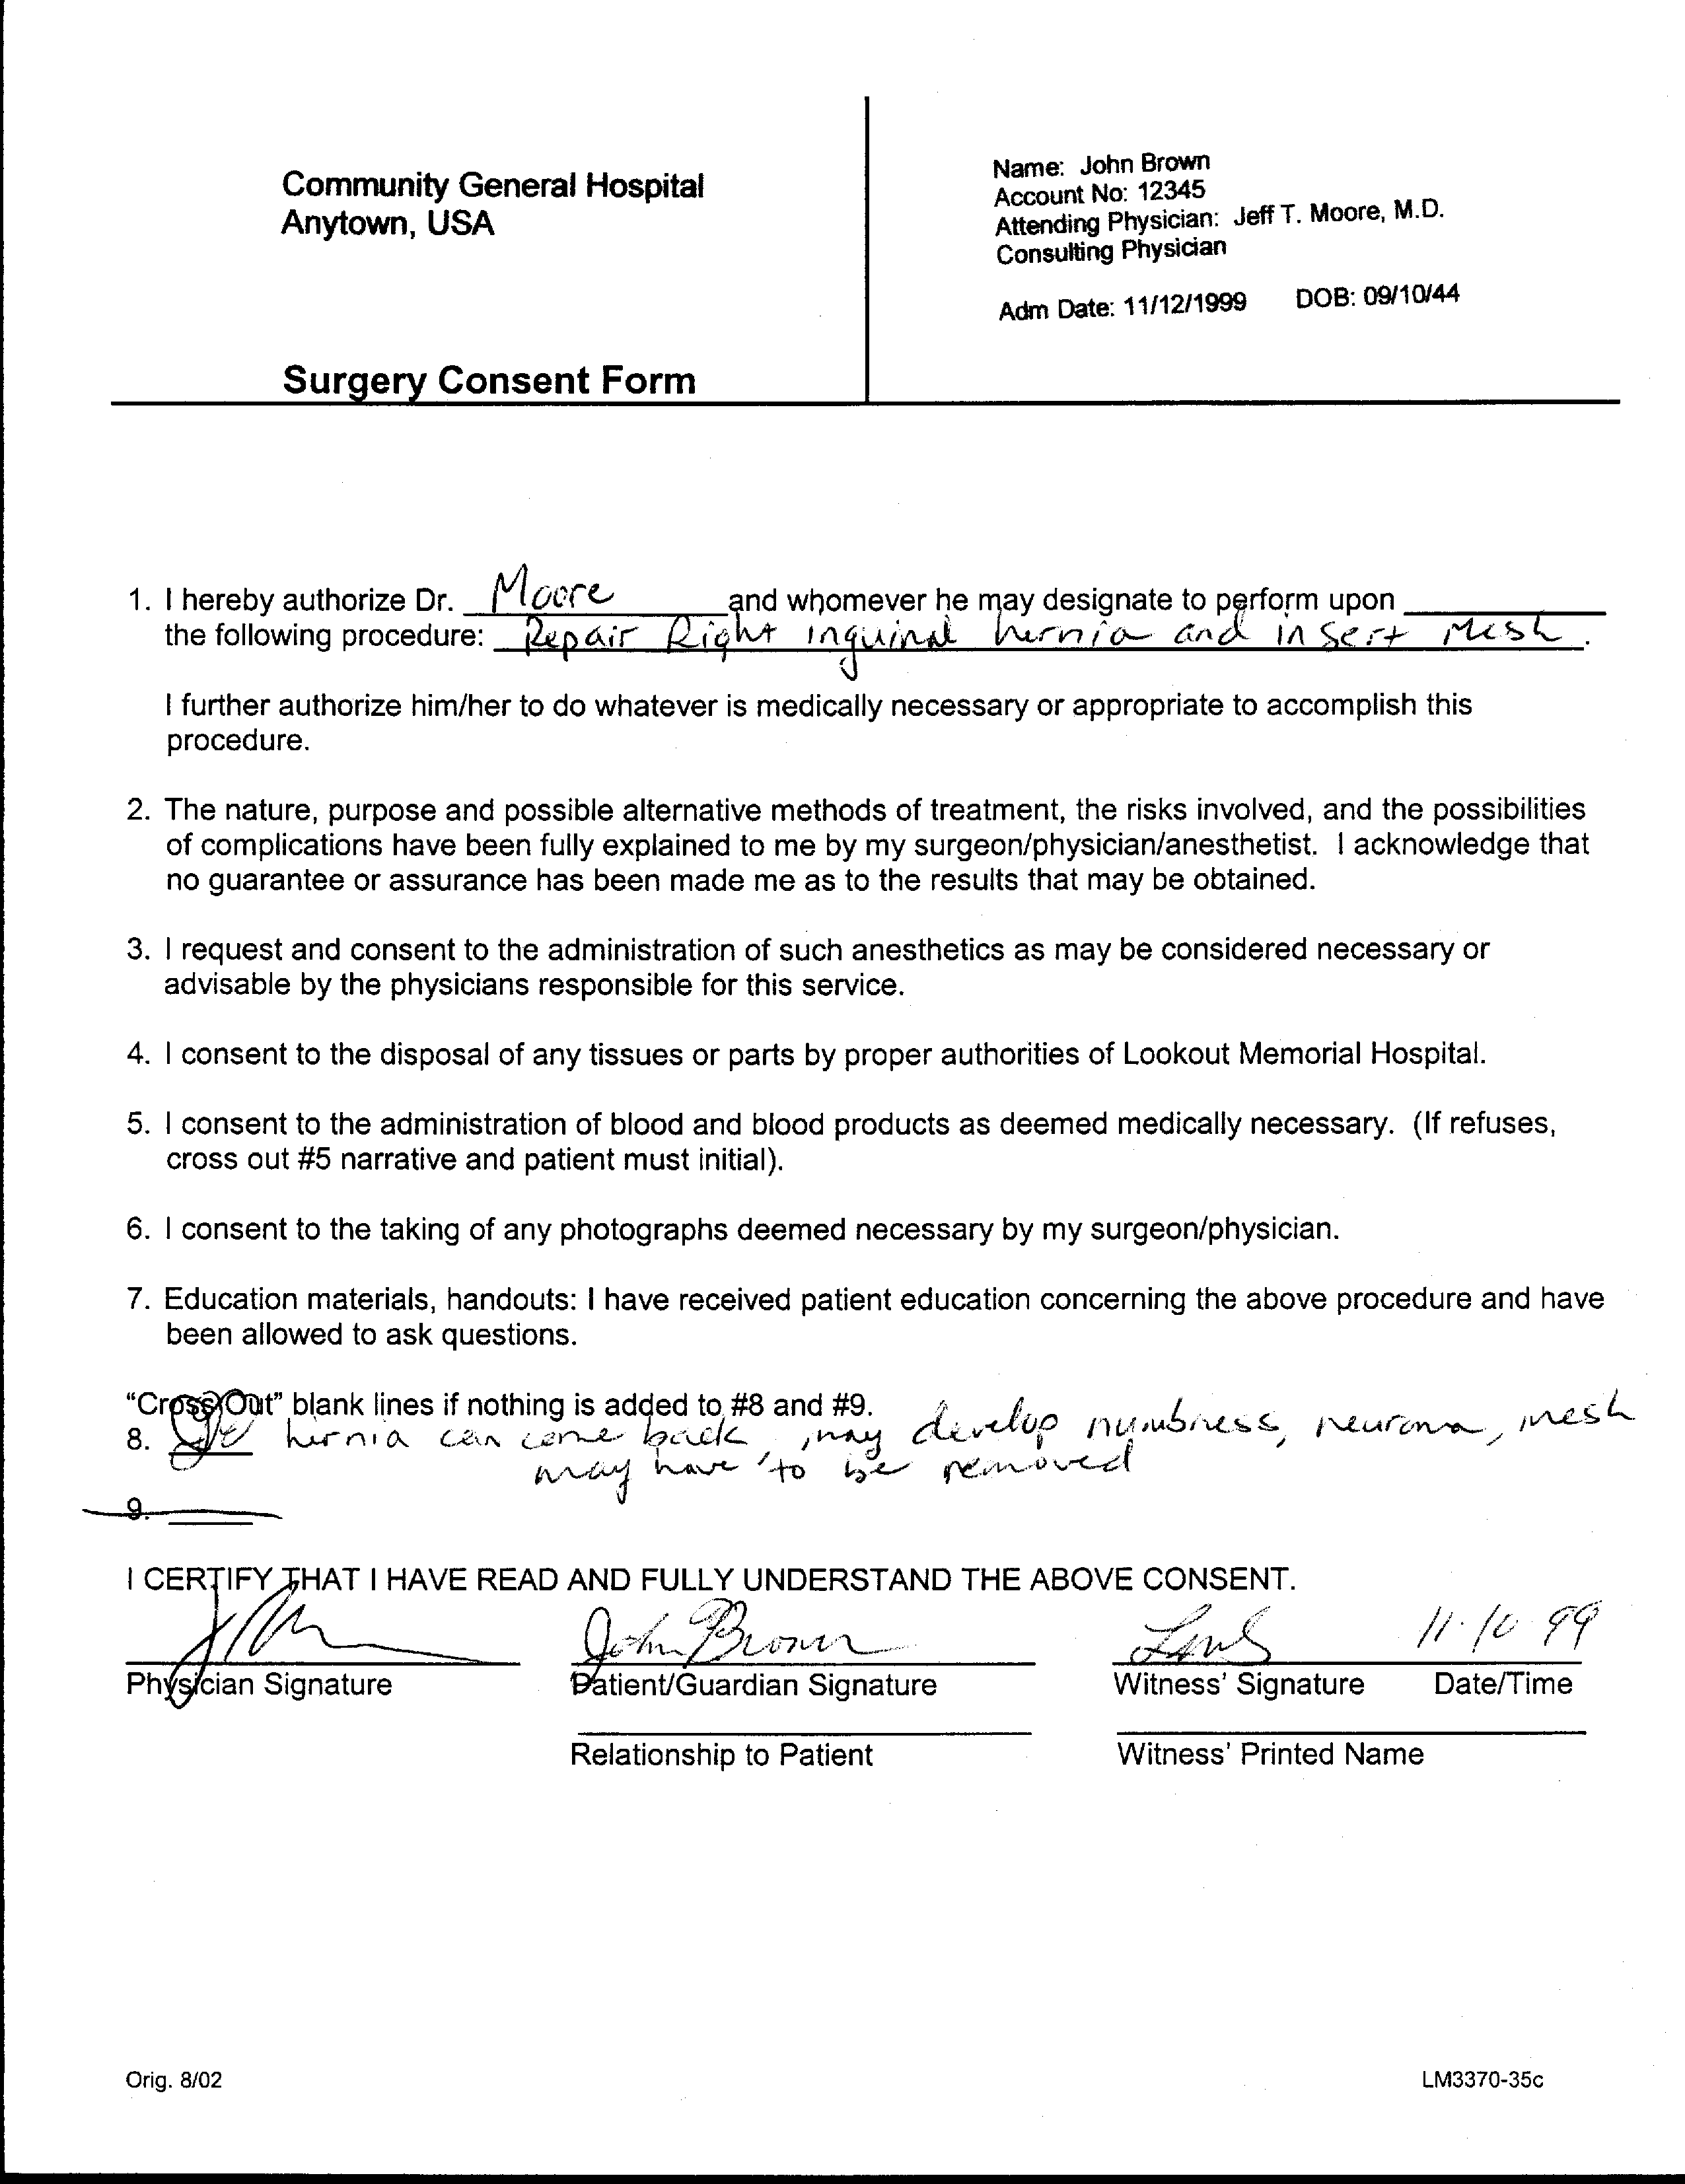 Community General Hospital
Anytown, USA
Surgery Consent Form
Name: John Brown
Account No: 12345
Attending Physician: Jeff T. Moore, M.D.
Consulting Physician
Adm Date: 11/12/1999 DOB: 09/10/44
1. I hereby authorize Dr. Moore and whomever he may designate to perform upon
the following procedure: Repair Right inguinal hernia and insert Mesh.
I further authorize him/her to do whatever is medically necessary or appropriate to accomplish this
procedure.
2. The nature, purpose and possible alternative methods of treatment, the risks involved, and the possibilities
of complications have been fully explained to me by my surgeon/physician/anesthetist. I acknowledge that
no guarantee or assurance has been made me as to the results that may be obtained.
3. I request and consent to the administration of such anesthetics as may be considered necessary or
advisable by the physicians responsible for this service.
4. I consent to the disposal of any tissues or parts by proper authorities of Lookout Memorial Hospital.
5. I consent to the administration of blood and blood products as deemed medically necessary. (If refuses,
cross out #5 narrative and patient must initial).
6. I consent to the taking of any photographs deemed necessary by my surgeon/physician.
7. Education materials, handouts: I have received patient education concerning the above procedure and have
been allowed to ask questions.
"Cross Out" blank lines if nothing is added to #8 and #9.
8. hernia can come back, may develop numbness, neuroma, mesh
may have to be removed
9.
I CERTIFY THAT I HAVE READ AND FULLY UNDERSTAND THE ABOVE CONSENT.
John Brown 11-10-99
Physician Signature Patient/Guardian Signature Witness' Signature Date/Time
Relationship to Patient Witness' Printed Name
Orig. 8/02 LM3370-35c